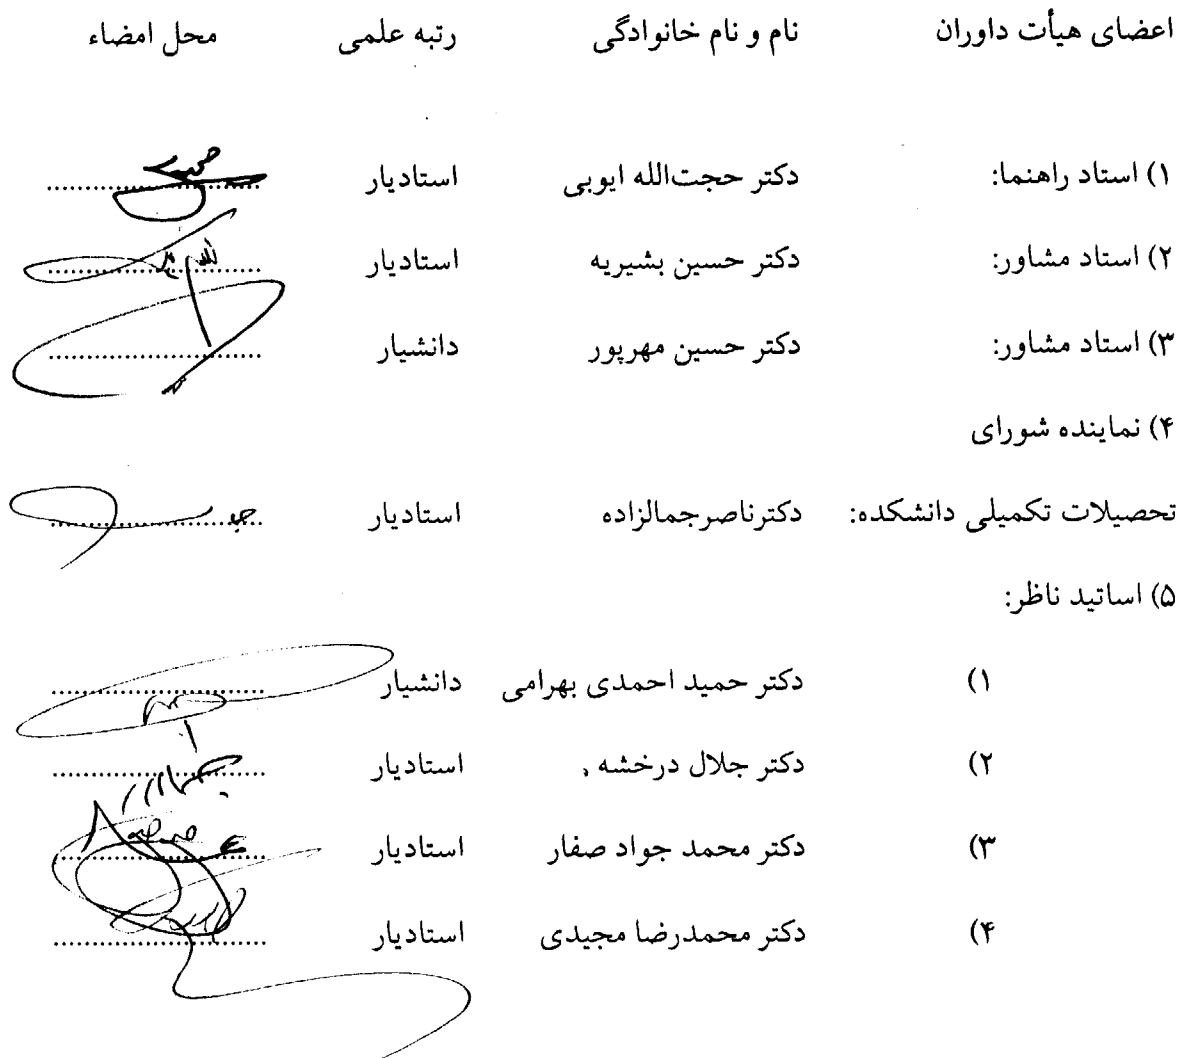 اعضای هیأت داوران نام و نام خانوادگی رتبه علمی محل امضاء
۱) استاد راهنما: دکتر حجت‌الله ایوبی استادیار ....................
۲) استاد مشاور: دکتر حسین بشیریه استادیار ....................
۳) استاد مشاور: دکتر حسین مهرپور دانشیار ....................
۴) نماینده شورای
تحصیلات تکمیلی دانشکده: دکترناصرجمالزاده استادیار ....................
۵) اساتید ناظر:
۱) دکتر حمید احمدی بهرامی دانشیار ....................
۲) دکتر جلال درخشه استادیار ....................
۳) دکتر محمد جواد صفار استادیار ....................
۴) دکتر محمدرضا مجیدی استادیار ....................